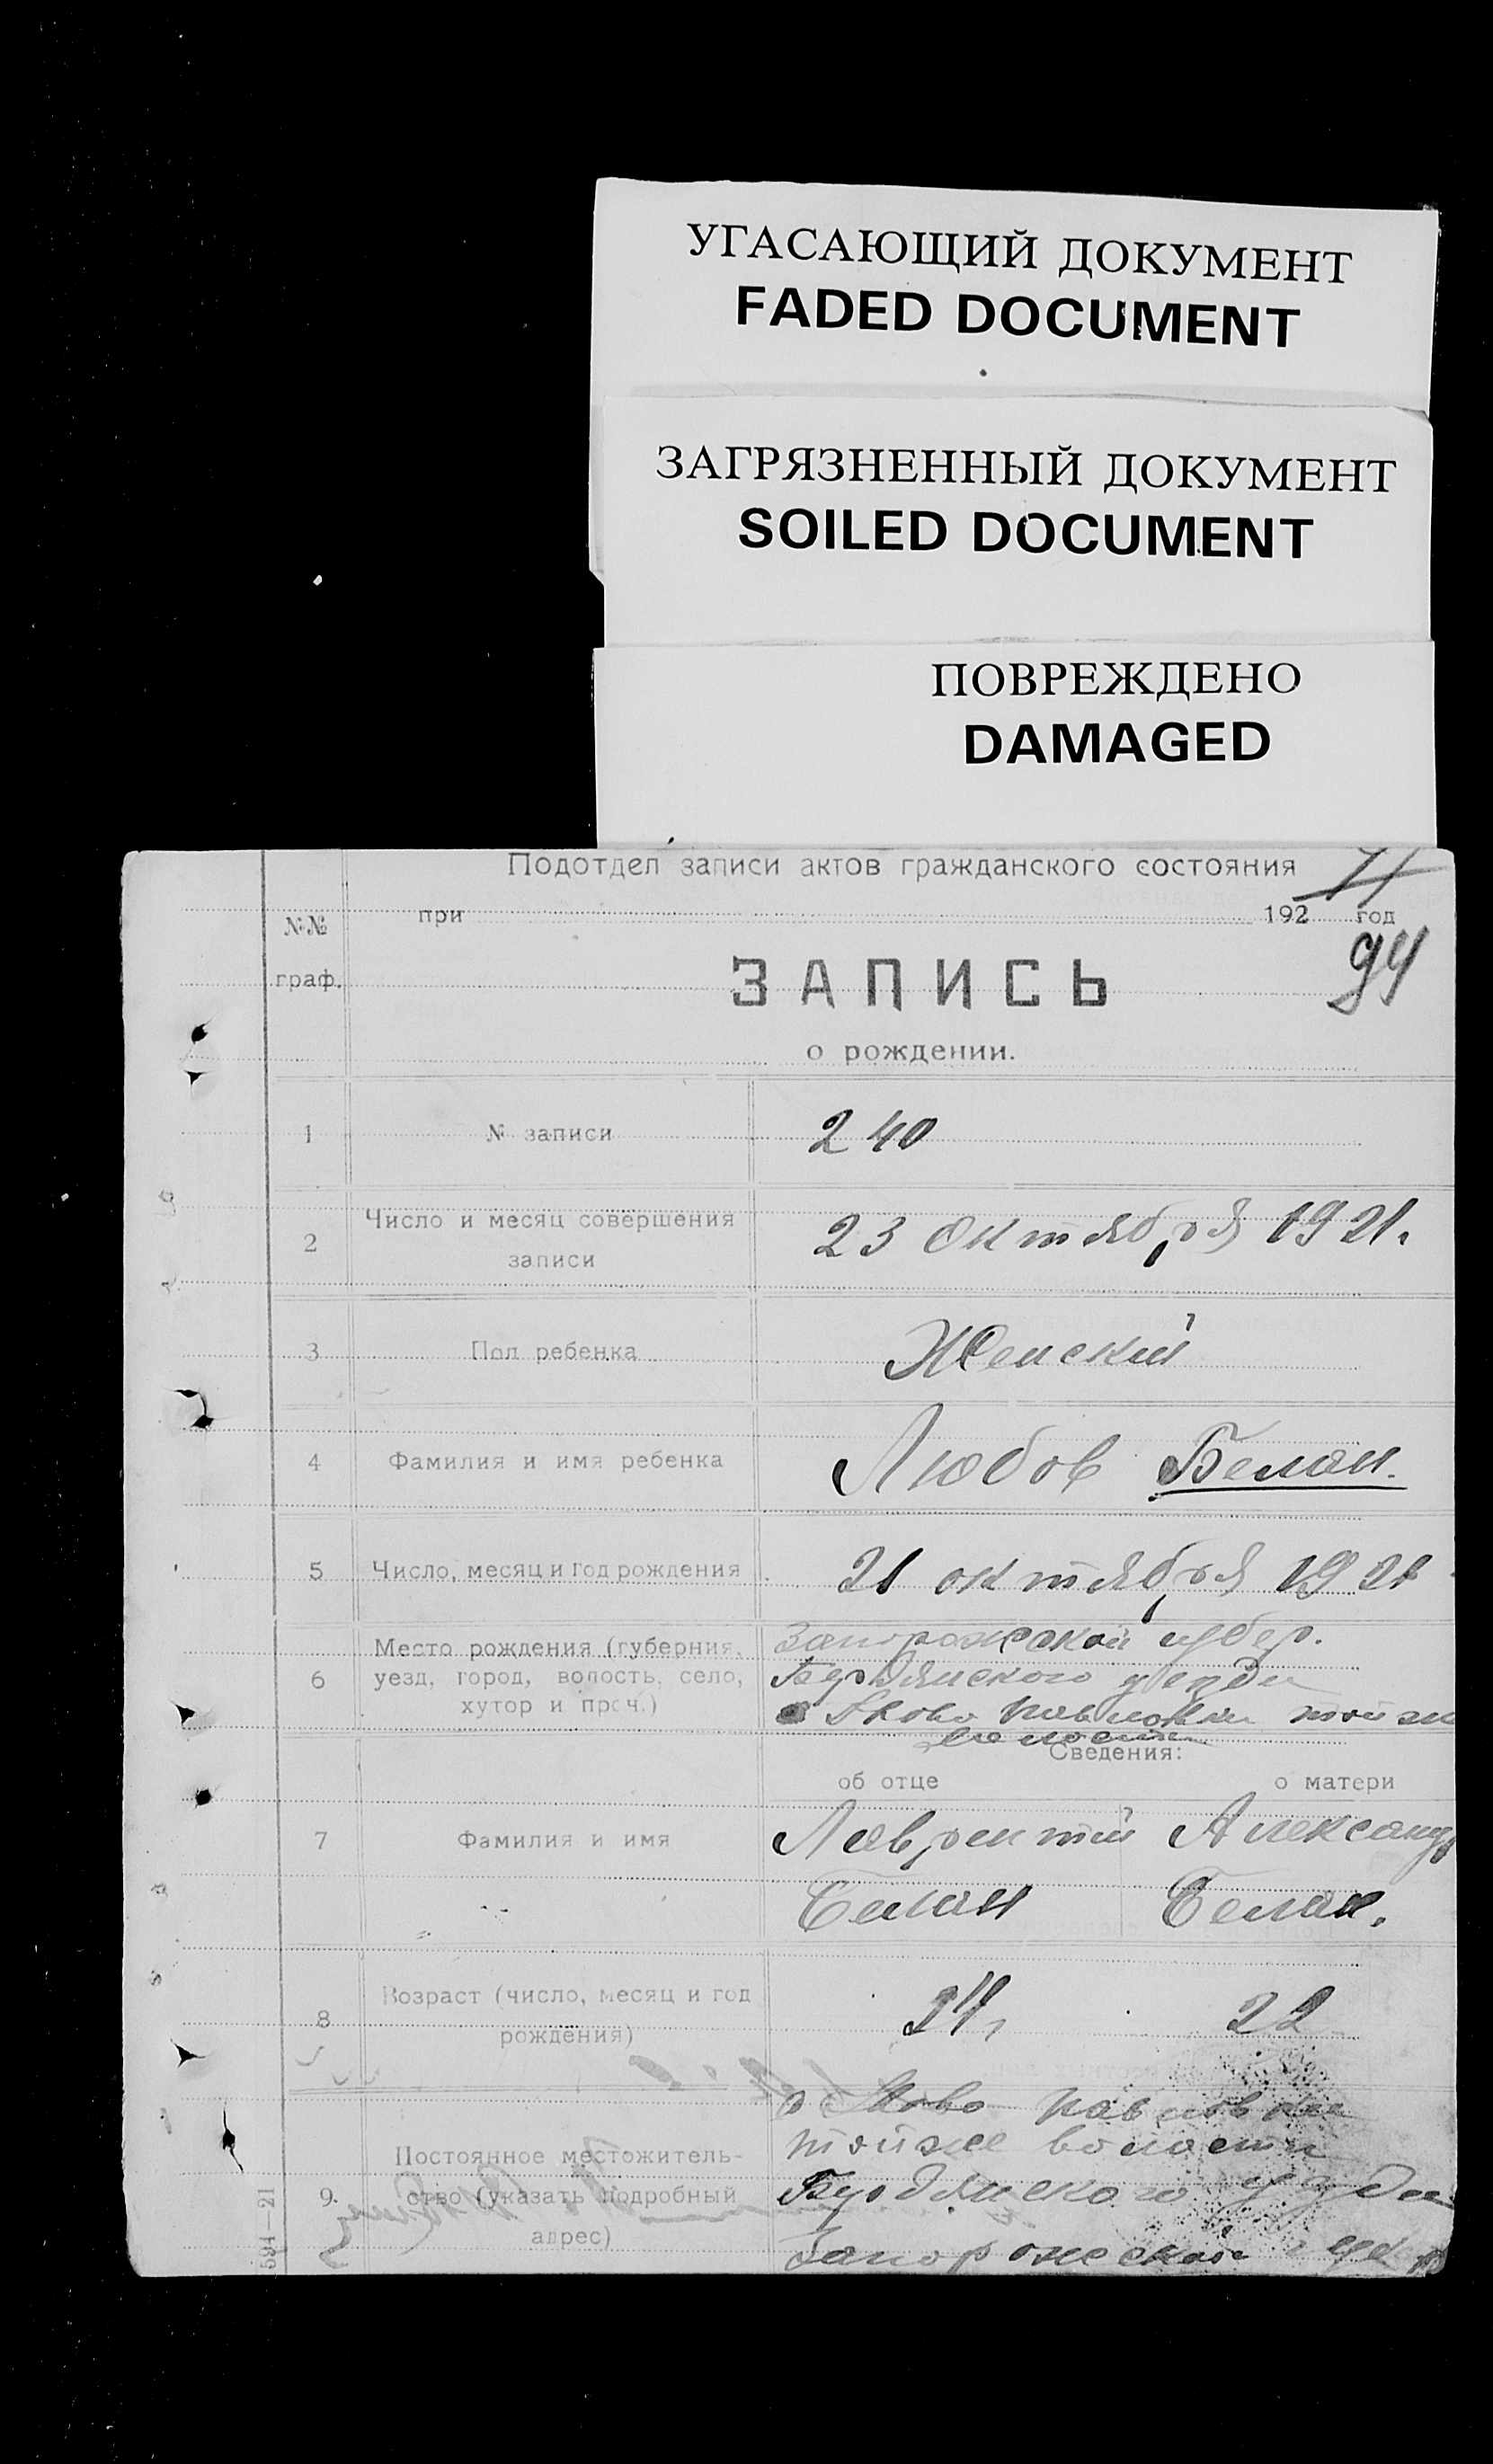 УГАСАЮЩИЙ ДОКУМЕНТ
FADED DOCUMENT
ЗАГРЯЗНЕННЫЙ ДОКУМЕНТ
SOILED DOCUMENT
ПОВРЕЖДЕНО
DAMAGED
Подотдел записи актов гражданского состояния
при 192 год
94
№№
граф.
ЗАПИСЬ
о рождении.
1 № записи 240
2 Число и месяц совершения
записи
23 Октября 1921.
3 Пол ребенка Женский
4 Фамилия и имя ребенка Любов Белан.
5 Число, месяц и год рождения 21 октября 1921
6 Место рождения (губерния,
уезд, город, волость, село,
хутор и проч.)
Запорожской губер.
Бердянского уезда
Ново Павловки той же
волости
Сведения:
об отце о матери
7 Фамилия и имя
Лаврентий Александ
Белан Белан.
8 Возраст (число, месяц и год
рождения)
24, 22
9. Постоянное местожитель-
ство (указать подробный
адрес)
Ново Павловки
тойже волости
Бурдянского уезда
Запорожской
594—21